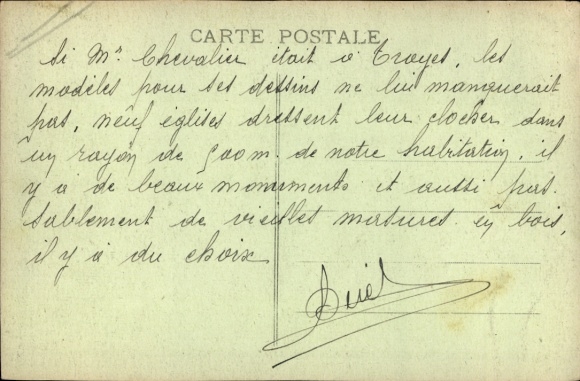 CARTE POSTALE
Si Mr Chevalier était à Troyes, les
modèles pour ses dessins ne lui manquerait
pas, neuf églises dressent leur clocher dans
un rayon de 500m. de notre habitation. il
y a de beaux monuments et aussi pas-
sablement de vieilles masures en bois,
il y a du choix